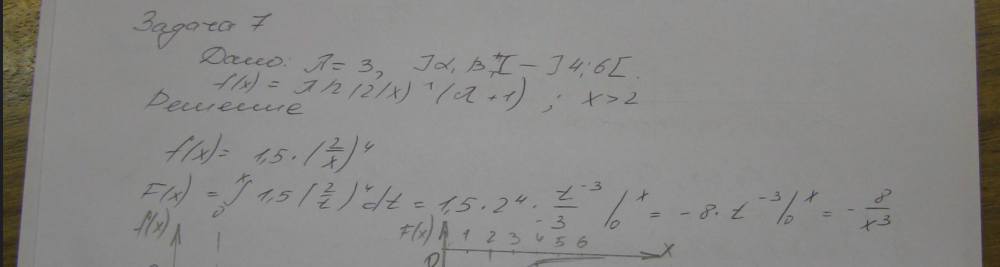 Задача 7
Дано: λ = 3, ]α, β[ - ]4; 6[.
f(x) = λ/2 (2/x)^(λ+1) ; x>2
Решение
f(x) = 1,5 · (2/x)⁴
F(x) = ∫₀ˣ 1,5 (2/t)⁴ dt = 1,5 · 2⁴ · t⁻³/-3 /₀ˣ = -8 · t⁻³/₀ˣ = - 8/x³
f(x) F(x) 1 2 3 4 5 6 x
0